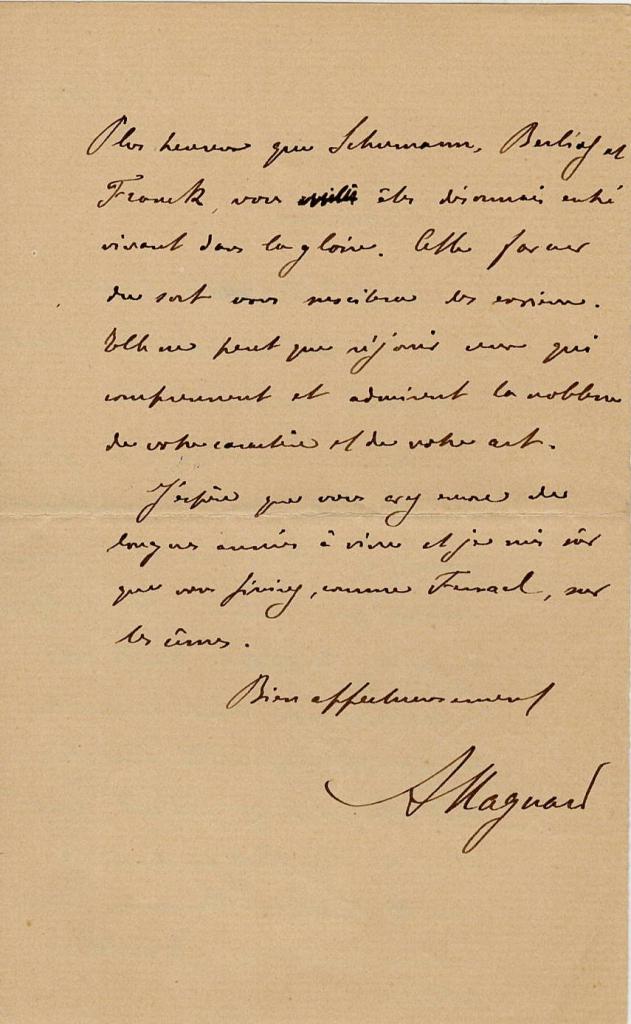 Plus heureux que Schumann, Berlioz et
Franck, vous êtes désormais entré
vivant dans la gloire. Cette faveur
du sort vous suscitera des envieux.
Elle ne peut que réjouir ceux qui
comprennent et admirent la noblesse
de votre caractère et de votre art.
J'espère que vous avez encore de
longues années à vivre et je suis sûr
que vous finirez, comme Fervaal, sur
les cîmes.
Bien affectueusement
A Magnard